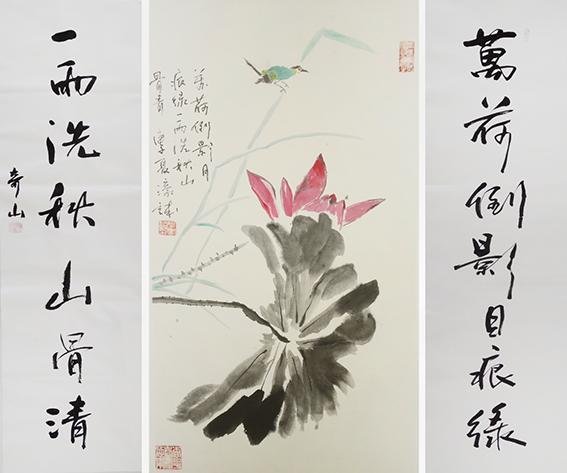 萬荷倒影目痕綠
萬荷倒影月
痕綠一雨洗秋山
骨青
一雨洗秋山骨清
奇山